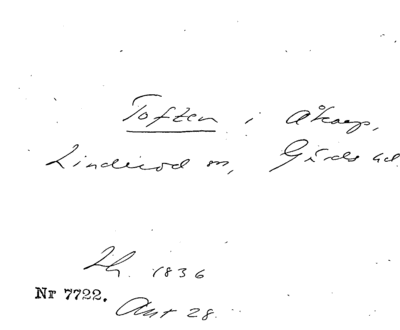 Toften i Åkarp,
Linderöd sn, Gärds hd.
Lh. 1836
Nr 7722.
Ant 28.